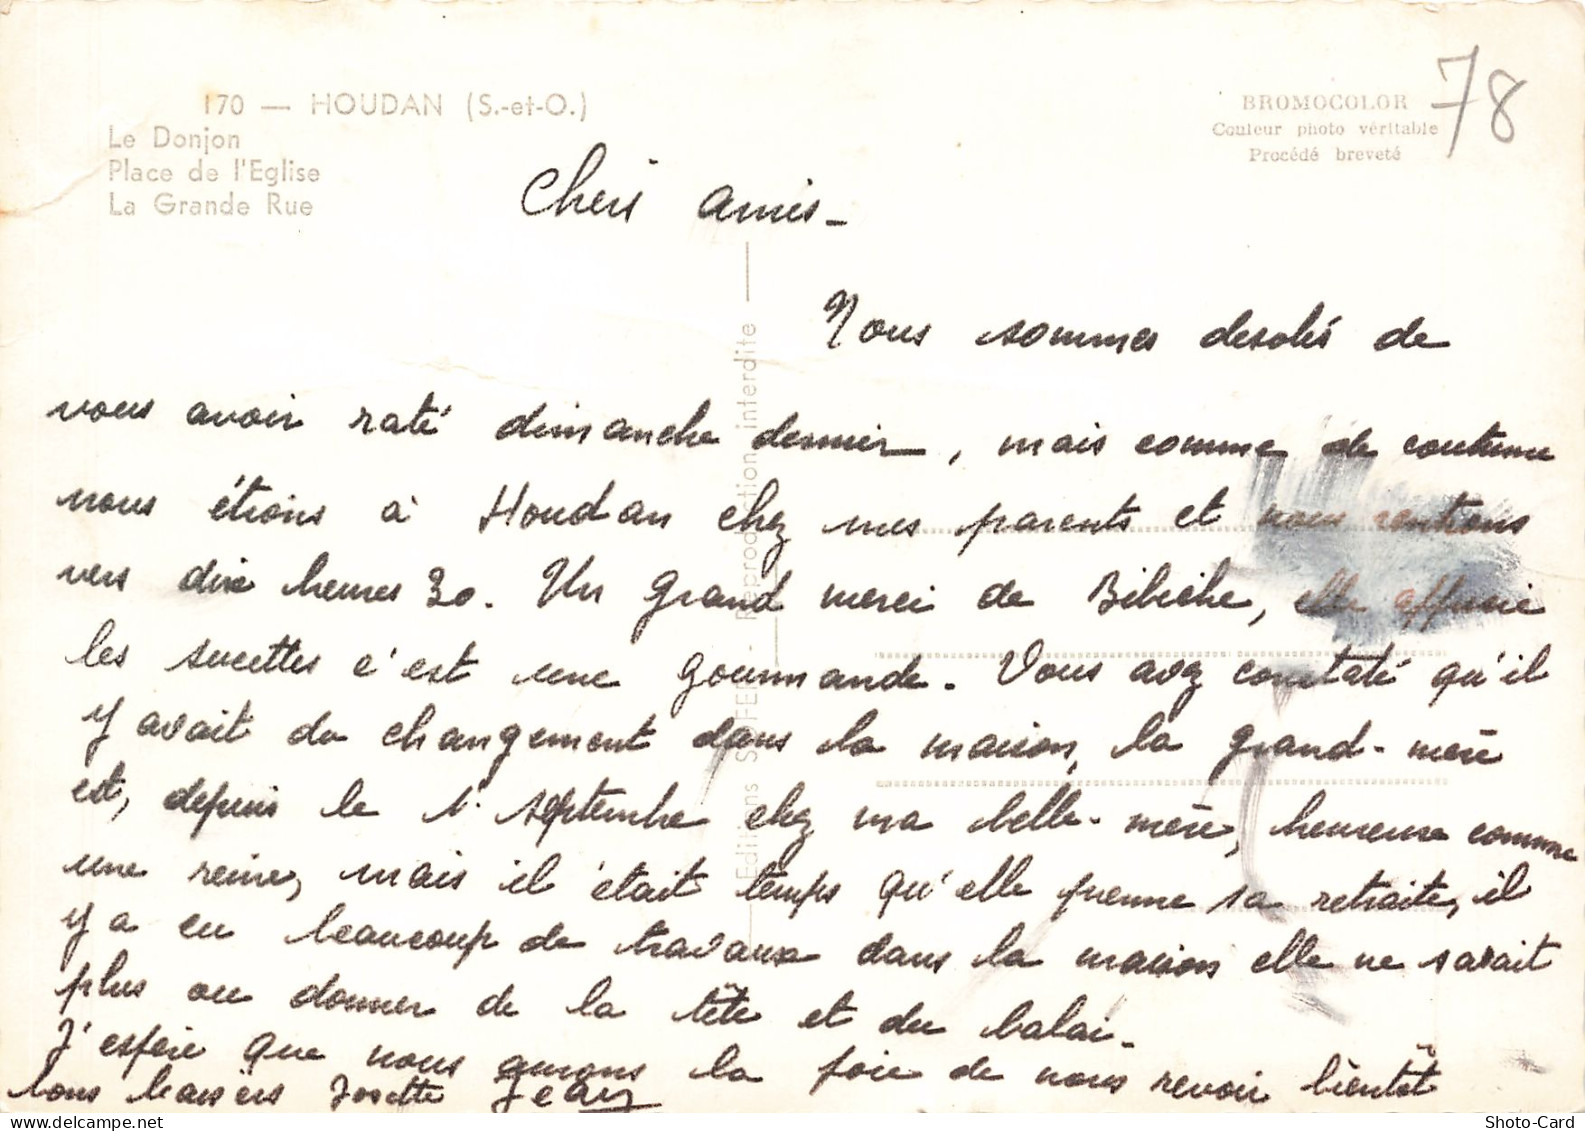 170 — HOUDAN (S.-et-O.)
Le Donjon
Place de l'Eglise
La Grande Rue
BROMOCOLOR
Couleur photo véritable
Procédé breveté
78
Editions SOFER - Reproduction interdite
Chers amis -
Nous sommes desolés de
vous avoir raté dimanche dernier, mais comme de coutume
nous étions à Houdan chez mes parents et nous rentrons
vers dix heures 30. Un grand merci de Bibiche, elle apprécie
les sucettes c'est une gourmande. Vous avez constaté qu'il
y avait du changement dans la maison, la grand-mère
est, depuis le 1r septembre chez ma belle-mère, heureuse comme
une reine, mais il était temps qu'elle prenne sa retraite, il
y a eu beaucoup de travaux dans la maison elle ne savait
plus ou donner de la tête et du balai.
J'espère que nous aurons la joie de nous revoir bientôt
bons baisers Josette Jean
Shoto-Card